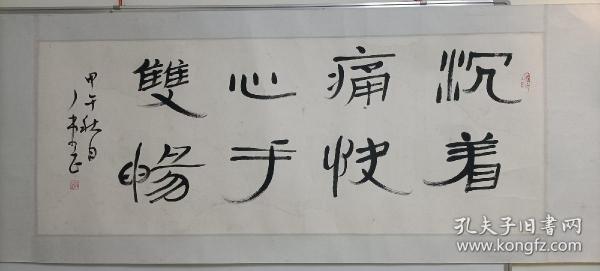 沉着
痛快
心手
雙暢
甲午秋月
孔夫子旧书网
www.kongfz.com